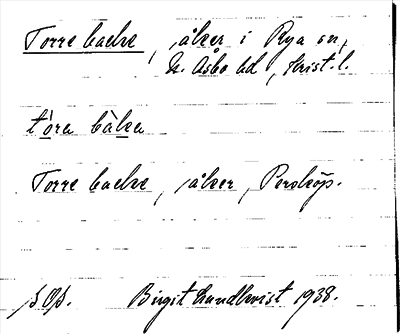 Torre backe, åker i Rya sn,
N. Åsbo hd, Krist. l.
tòra bàka
Torre backe, åker, Perstorp.
Birgit Lundkvist 1938.